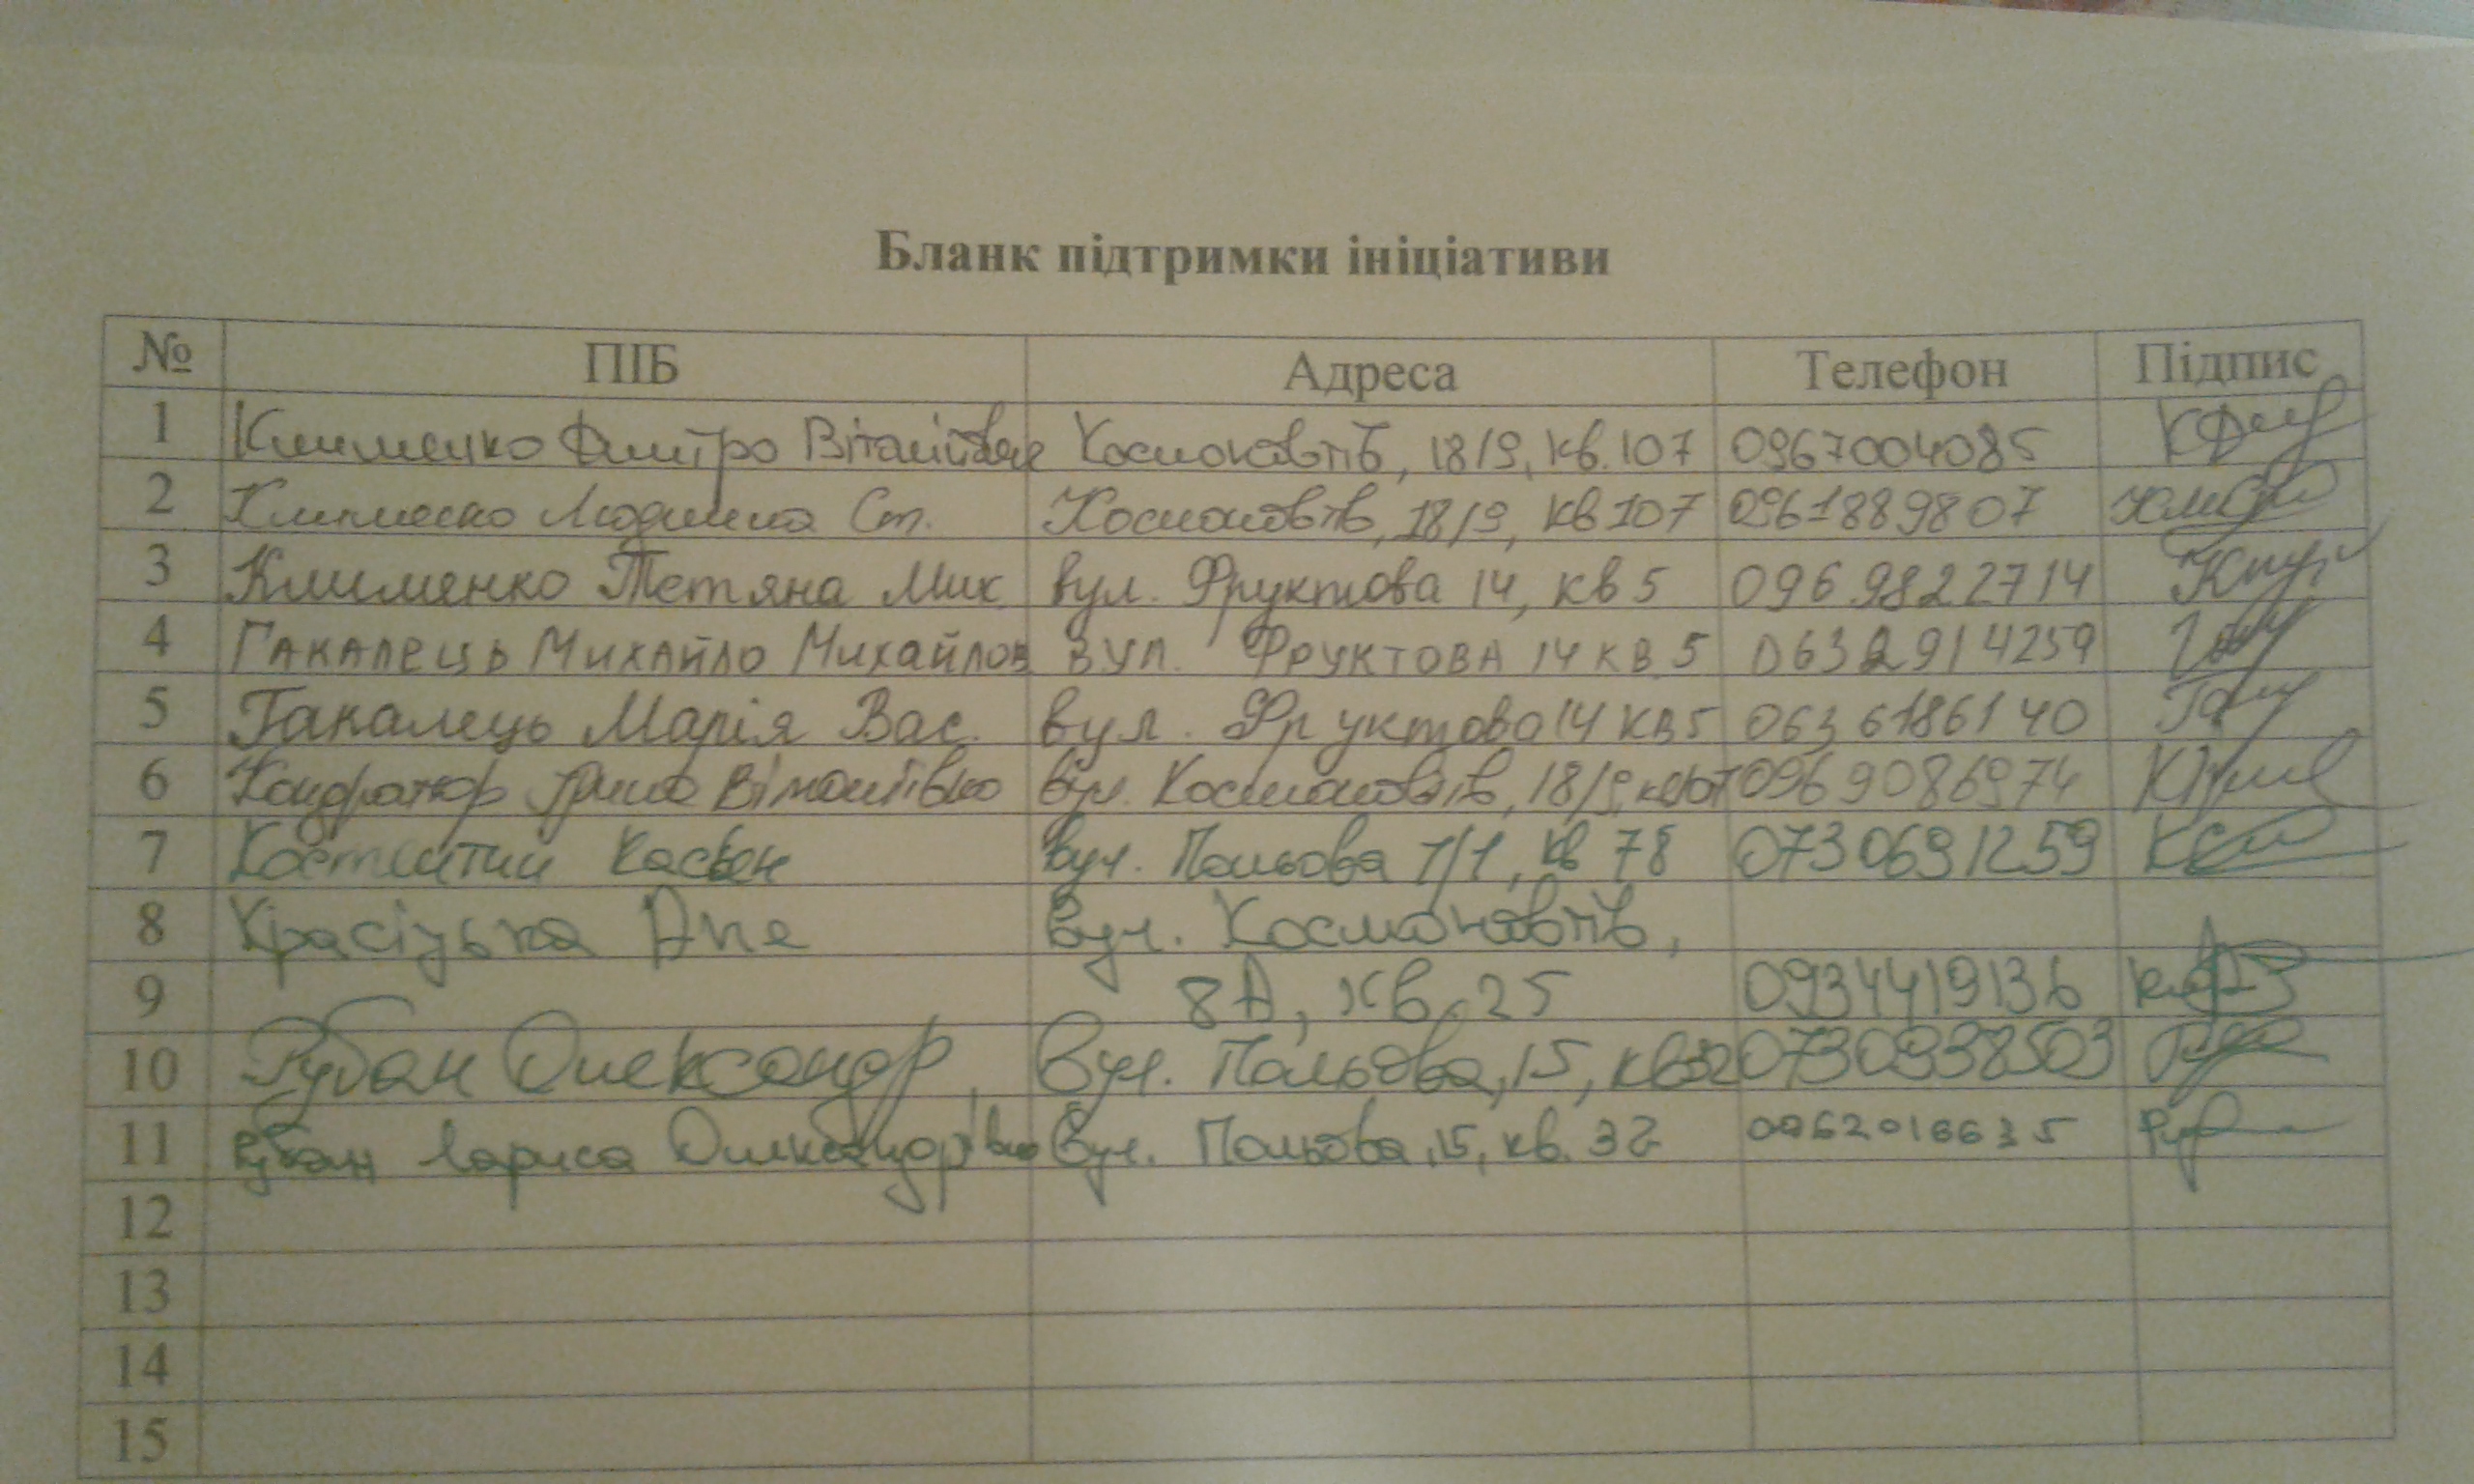 Бланк підтримки ініціативи
№ ПІБ Адреса Телефон Підпис
1 Клименко Дмитро Віталійович Космонавтів, 18/9, кв. 107 0967004085
2 Клименко Людмила Ст. Космонавтів, 18/9, кв 107 0961889807
3 Клименко Тетяна Мик. вул. Фруктова 14, кв 5 0969822714
4 Гакалець Михайло Михайлов вул. Фруктова 14 кв. 5 0632914259
5 Гакалець Марія Вас. вул. Фруктова 14 кв 5 0636186140
6 Кондратюк Віталіївна вул. Космонавтів, 18/9, 0969086974
7 Костянтин вул. Польова 1/1, кв 78 0730691259
8 Кірасіцька вул. Космонавтів,
9 8А, кв. 25 0934419136
10 Рубан Олександр вул. Польова, 15, кв 32 0730938503
11 Рубан Лариса Олександрівна вул. Польова, 15, кв. 32 0962016635
12
13
14
15